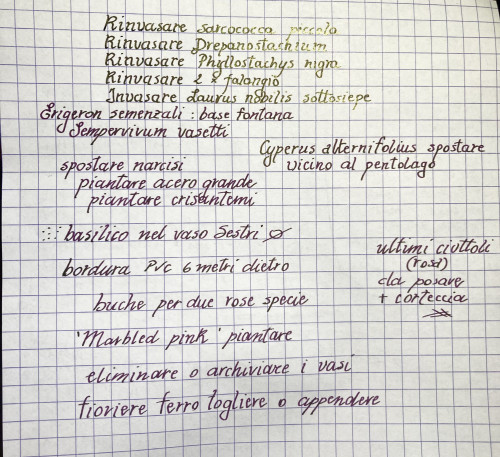 Rinvasare sarcococca piccola
Rinvasare Drepanostachium
Rinvasare Phyllostachys nigra
Rinvasare 2 x falangio
Invasare Laurus nobilis sottosiepe
Erigeron semenzali : base fontana
Sempervivum vasetti
Cyperus alternifolius spostare
vicino al pentolago
spostare narcisi
piantare acero grande
piantare crisantemi
basilico nel vaso Sestri
bordura P/c 6 metri dietro
buche per due rose specie
'Marbled pink' piantare
eliminare o archiviare i vasi
fioriere ferro togliere o appendere
ultimi ciottoli
(rosa)
da posare
+ corteccia